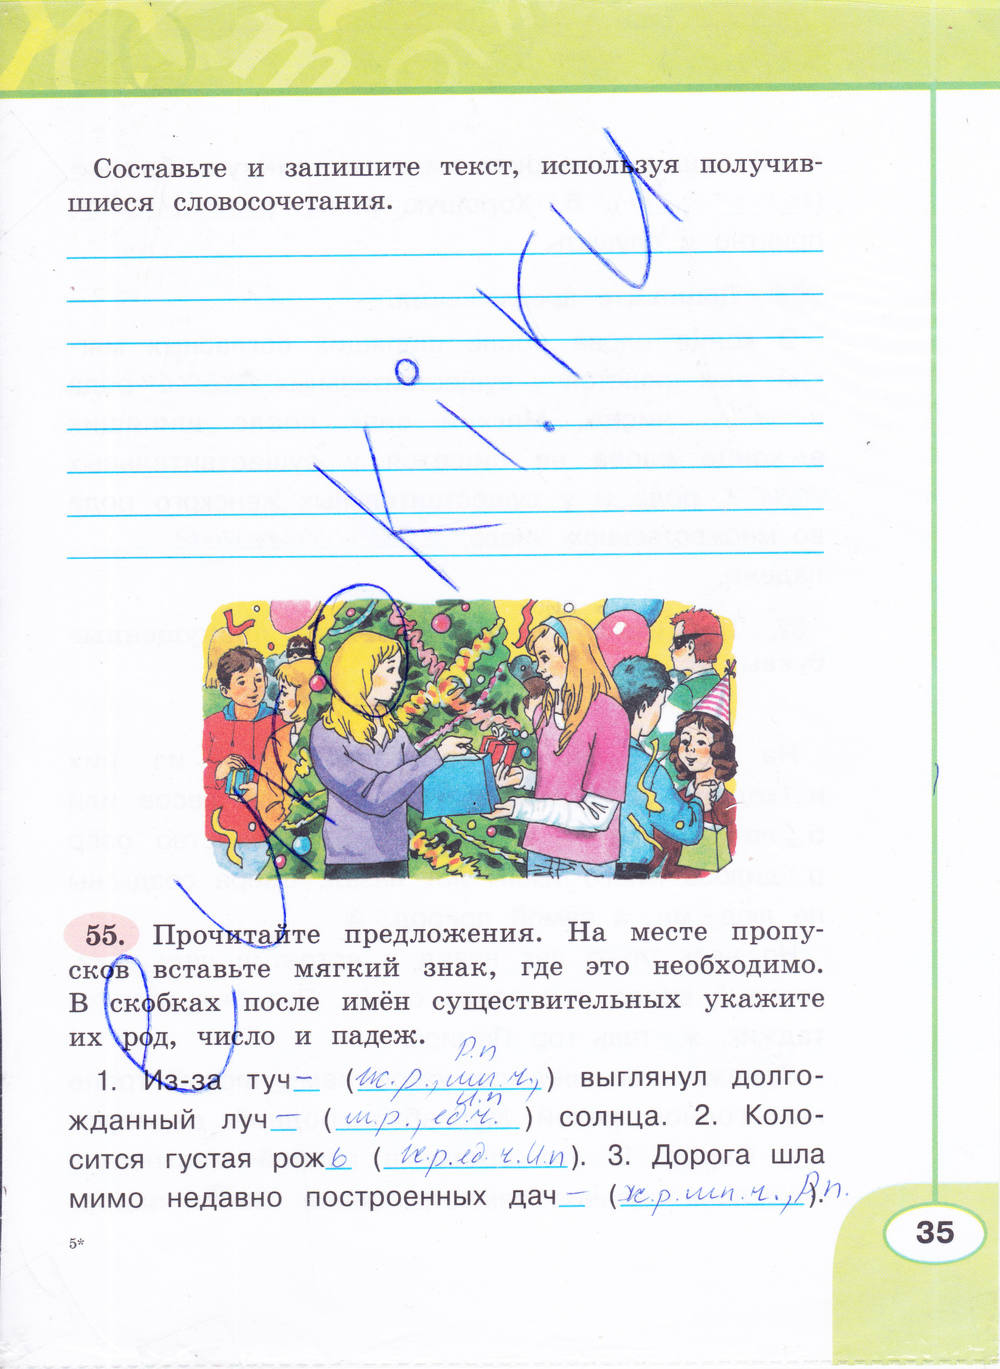 Составьте и запишите текст, используя получив-
шиеся словосочетания.
55. Прочитайте предложения. На месте пропу-
сков вставьте мягкий знак, где это необходимо.
В скобках после имён существительных укажите
их род, число и падеж.
Р.п
1. Из-за туч – (ж.р., мн.ч.,) выглянул долго-
И.п
жданный луч – (м.р., ед.ч.) солнца. 2. Коло-
сится густая рожь (ж.р.ед.ч.И.п). 3. Дорога шла
мимо недавно построенных дач – (ж.р.мн.ч., Р.п.).
5*
35